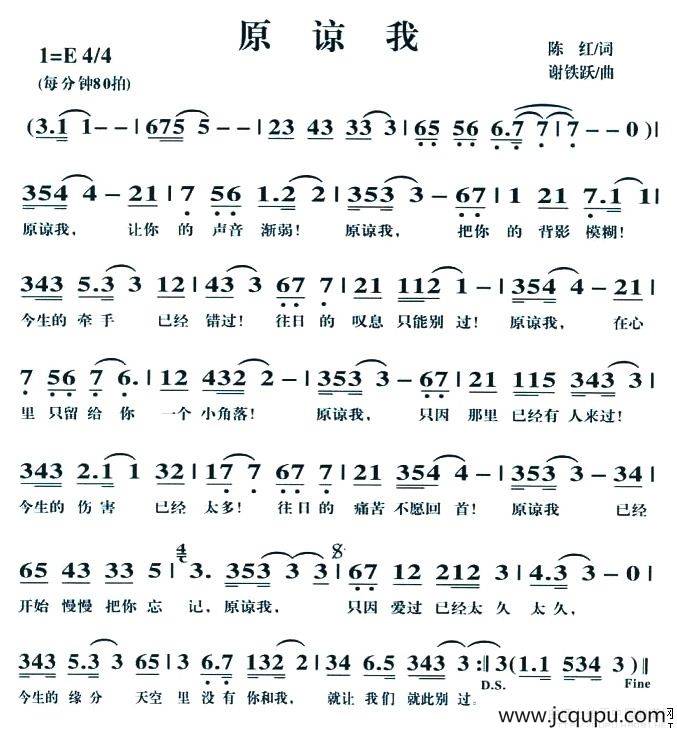 原谅我
1=E 4/4
陈 红/词
(每分钟80拍)
谢铁跃/曲
(3.1 1--|675 5--|23 43 33 3|65 56 6.7 7|7--0)|
354 4-21|7 56 1.2 2|353 3-67|1 21 7.1 1|
原谅我， 让你 的 声音 渐弱！ 原谅我， 把你 的 背影 模糊！
343 5.3 3 12|43 3 67 7|21 112 1-|354 4-21|
今生的 牵手 已经 错过！ 往日 的 叹息 只能别 过！ 原谅我， 在心
7 56 7 6.|12 432 2-|353 3-67|21 115 343 3|
里 只留 给 你 一个 小角落！ 原谅我， 只因 那里 已经有 人来过！
343 2.1 1 32|17 7 67 7|21 354 4-|353 3-34|
今生的 伤害 已经 太多！ 往日 的 痛苦 不愿回 首！ 原谅我 已经
65 43 33 5|3. 353 3 3|67 12 212 3|4.3 3-0|
开始 慢慢 把你 忘 记，原谅我， 只因 爱过 已经太 久 太久，
343 5.3 3 65|3 6.7 132 2|34 6.5 343 3:||3(1.1 534 3)||
今生的 缘分 天空 里 没有 你和我， 就让 我们 就此别 过。
D.S. Fine
www.jcqupu.com